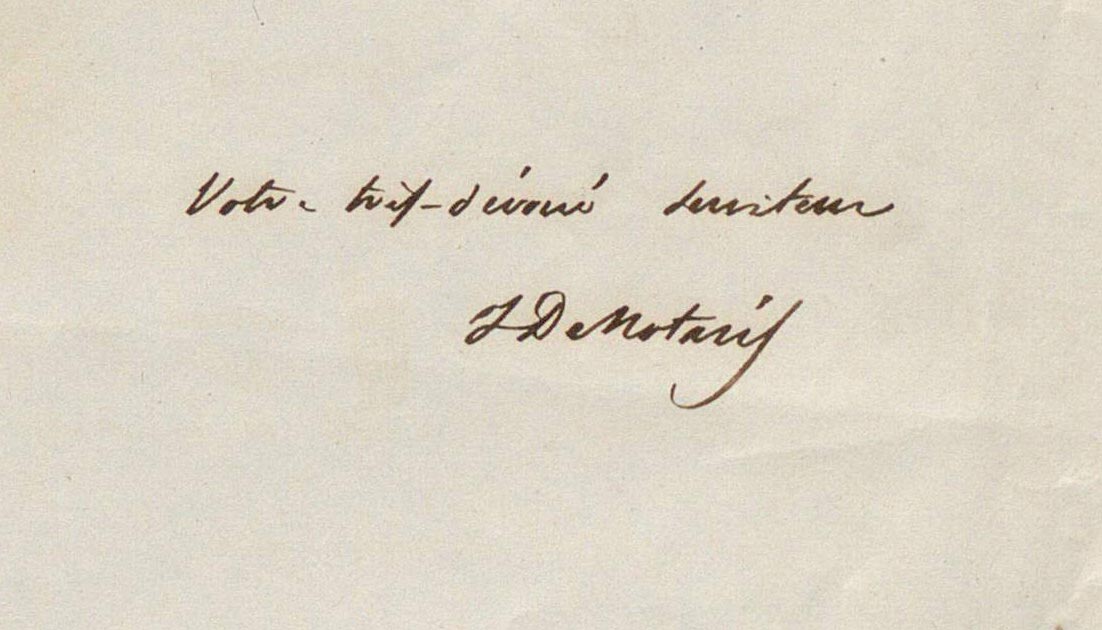 Votre très-dévoué serviteur
J DeNotaris